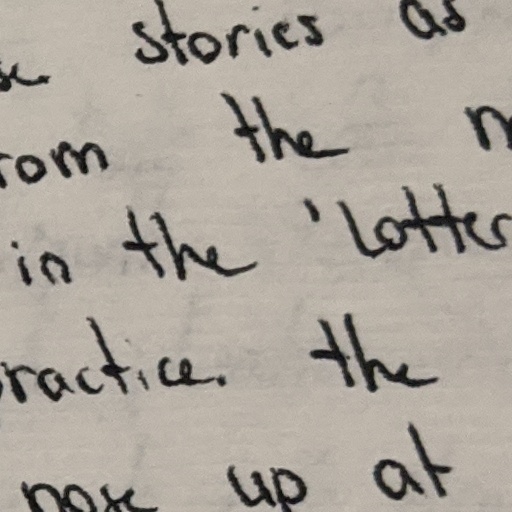 stories as
rom the
in the 'Lotter
ractice. the
up at